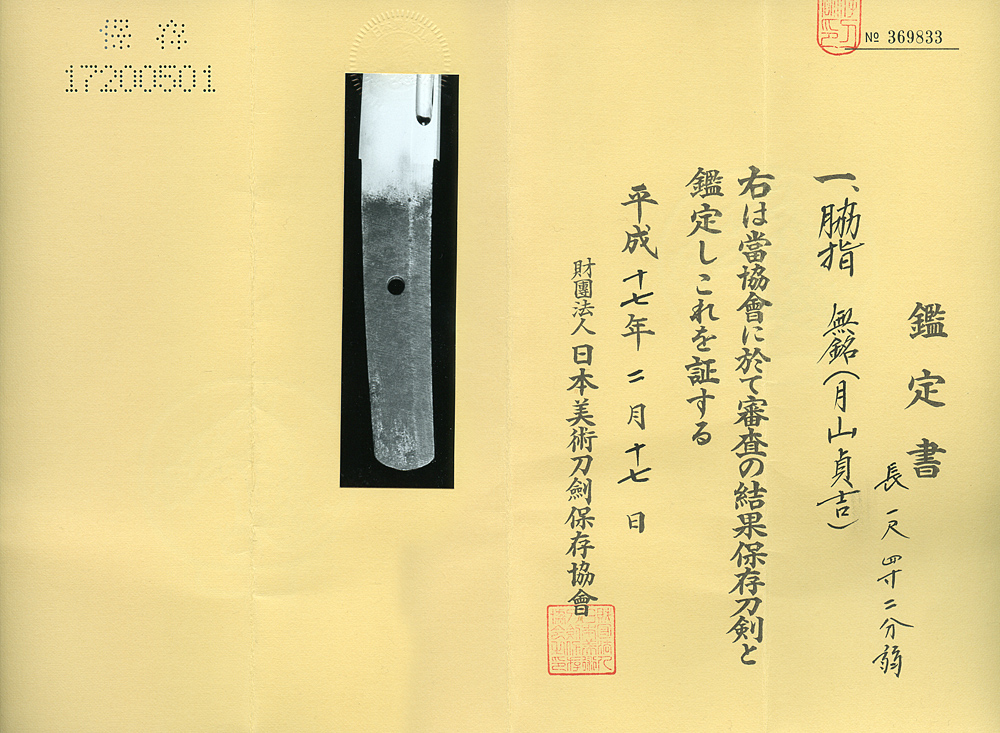 保存
17200501
№ 369833
鑑定書
長 一尺四寸二分弱
一、脇指 無銘(月山貞吉)
右は當協會に於て審査の結果保存刀剣と
鑑定しこれを証する
平成十七年二月十七日
財團法人日本美術刀劍保存協會